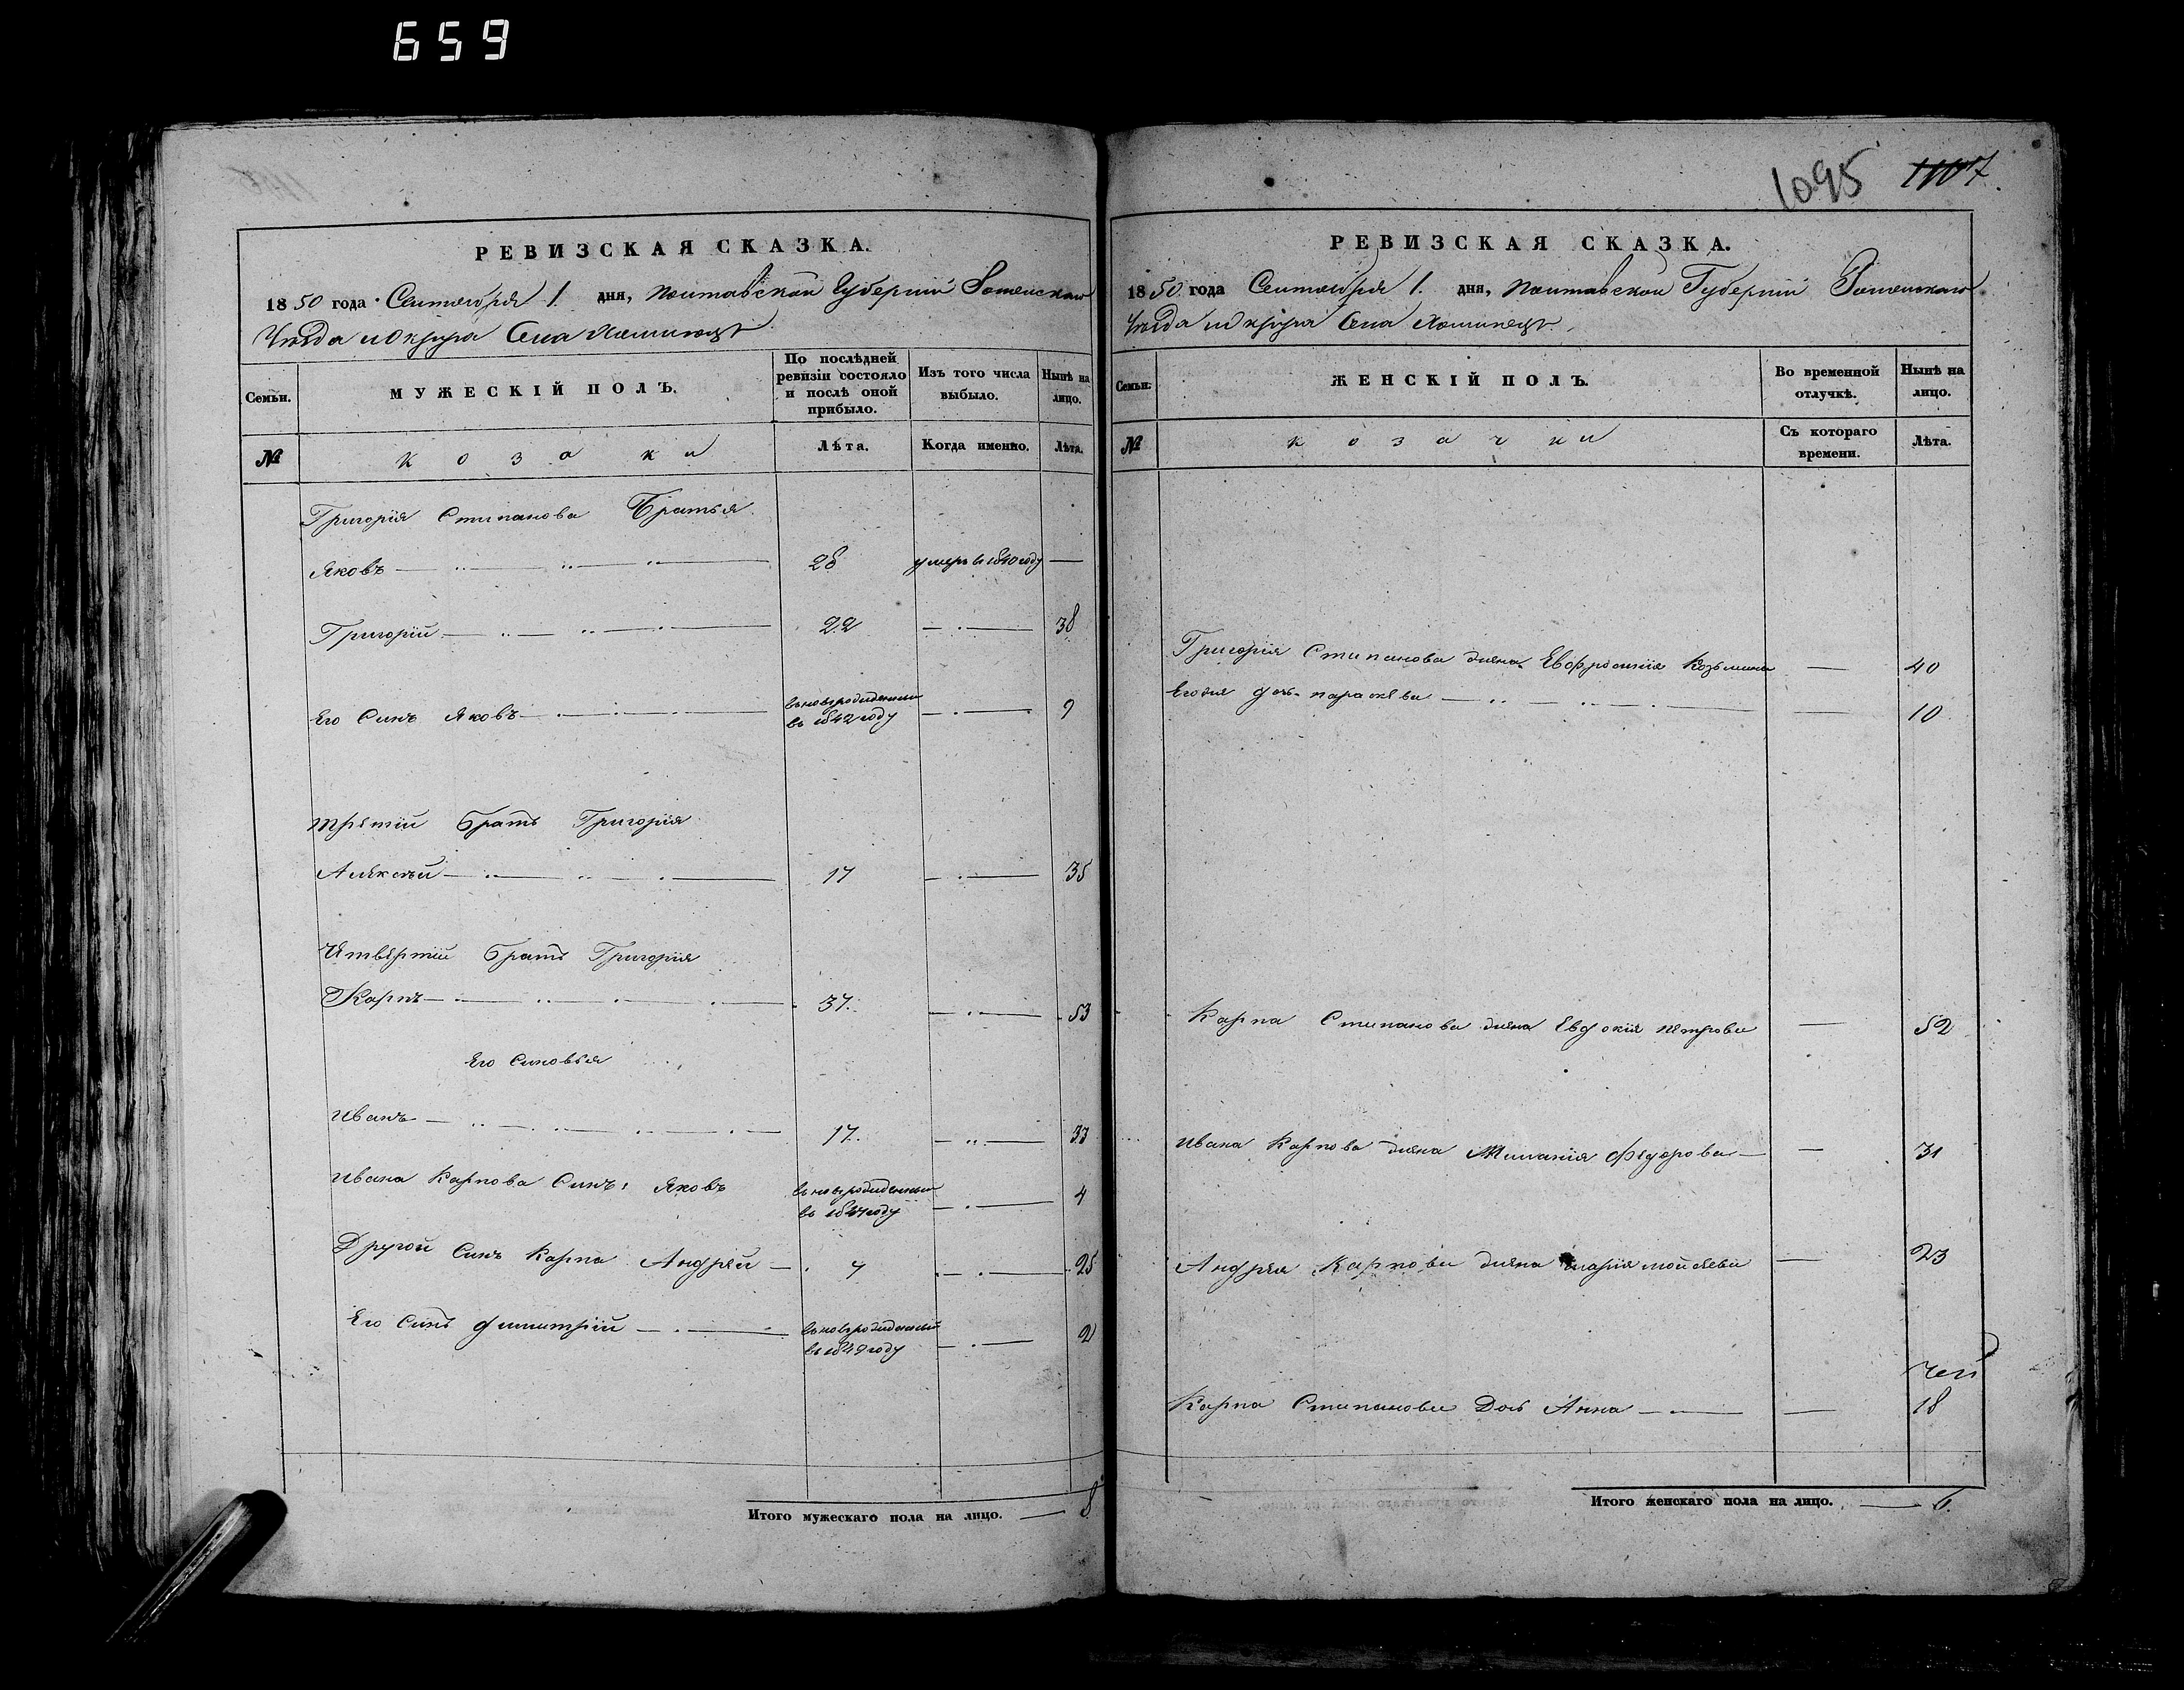 659
РЕВИЗСКАЯ СКАЗКА.
1850 года Сентября 1. дня, Полтавской Губернии Роменскаго
Уѣзда и Округа Села Хоминецъ
Семьи.
МУЖЕСКІЙ ПОЛЪ.
По послѣдней ревизіи состояло и послѣ оной прибыло.
Изъ того числа выбыло.
Нынѣ на лицо.
№
козаки
Лѣта.
Когда именно.
Лѣта.
Григорія Стипанова Братья
Яковъ 28 умеръ в 1840 году —
Григорій 22 — 38
Его Синъ Яковъ вьновърожденный въ 1842 году — 9
Третій братъ Григорія
Алексѣй 17 — 35
Четвертій братъ Григорія
Карпъ 37. — 53
Его Синовья
Иванъ 17. — 33
Ивана Карпова Синъ: Яковъ вьновърожденный въ 1847 году — 4
Другой Синъ Карпа Андрей — 9 — 25
Его Синъ Димитрій — вьновърожденный въ 1849 году — 2
Итого мужескаго пола на лицо. — 8.
1095 1107
РЕВИЗСКАЯ СКАЗКА.
1850 года Сентября 1. дня, Полтавской Губерніи Роменскаго
Уѣзда и Округа Села Хоминецъ
Семьи.
ЖЕНСКІЙ ПОЛЪ.
Во временной отлучкѣ.
Нынѣ на лицо.
№
козачки
Съ котораго времени.
Лѣта.
Григорія Стипанова жена Евфросинія Козьмина — 40
Егожя дочь Параскева — 10
Карпа Стипанова жена Евдокія Петрова — 52
Ивана Карпова жена Миланія Федорова — 31
Андрея Карпова жена Марія Мойсеева — 23
Карпа Стипанова Дочь Анна — 18
Итого женскаго пола на лицо. — 6.